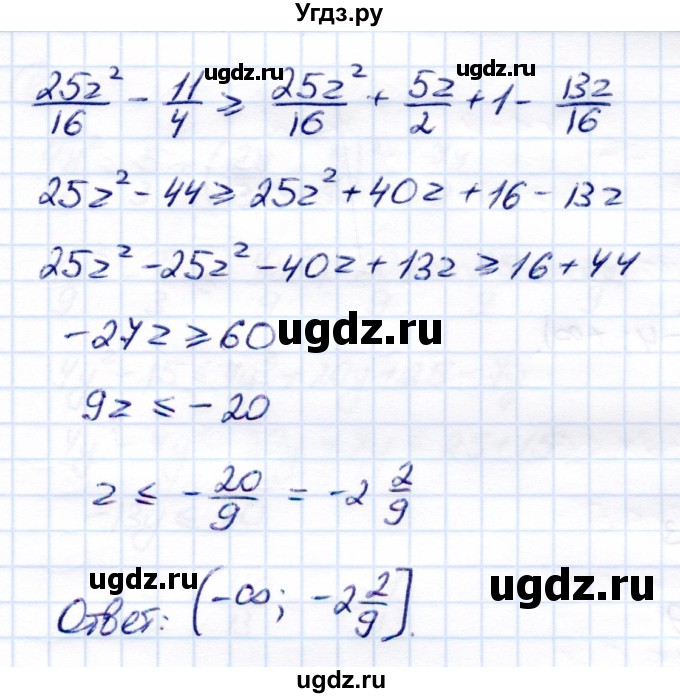 Угдз.ру
25z²/16 - 11/4 ≥ 25z²/16 + 5z/2 + 1 - 13z/16
ugdz.ru ugdz.ru
25z² - 44 ≥ 25z² + 40z + 16 - 13z
25z² - 25z² - 40z + 13z ≥ 16 + 44
-27z ≥ 60
ugdz.ru
9z ≤ -20
z ≤ -20/9 = -2 2/9
ugdz.ru ugdz.ru
Ответ: (-∞; -2 2/9].
ugdz.ru